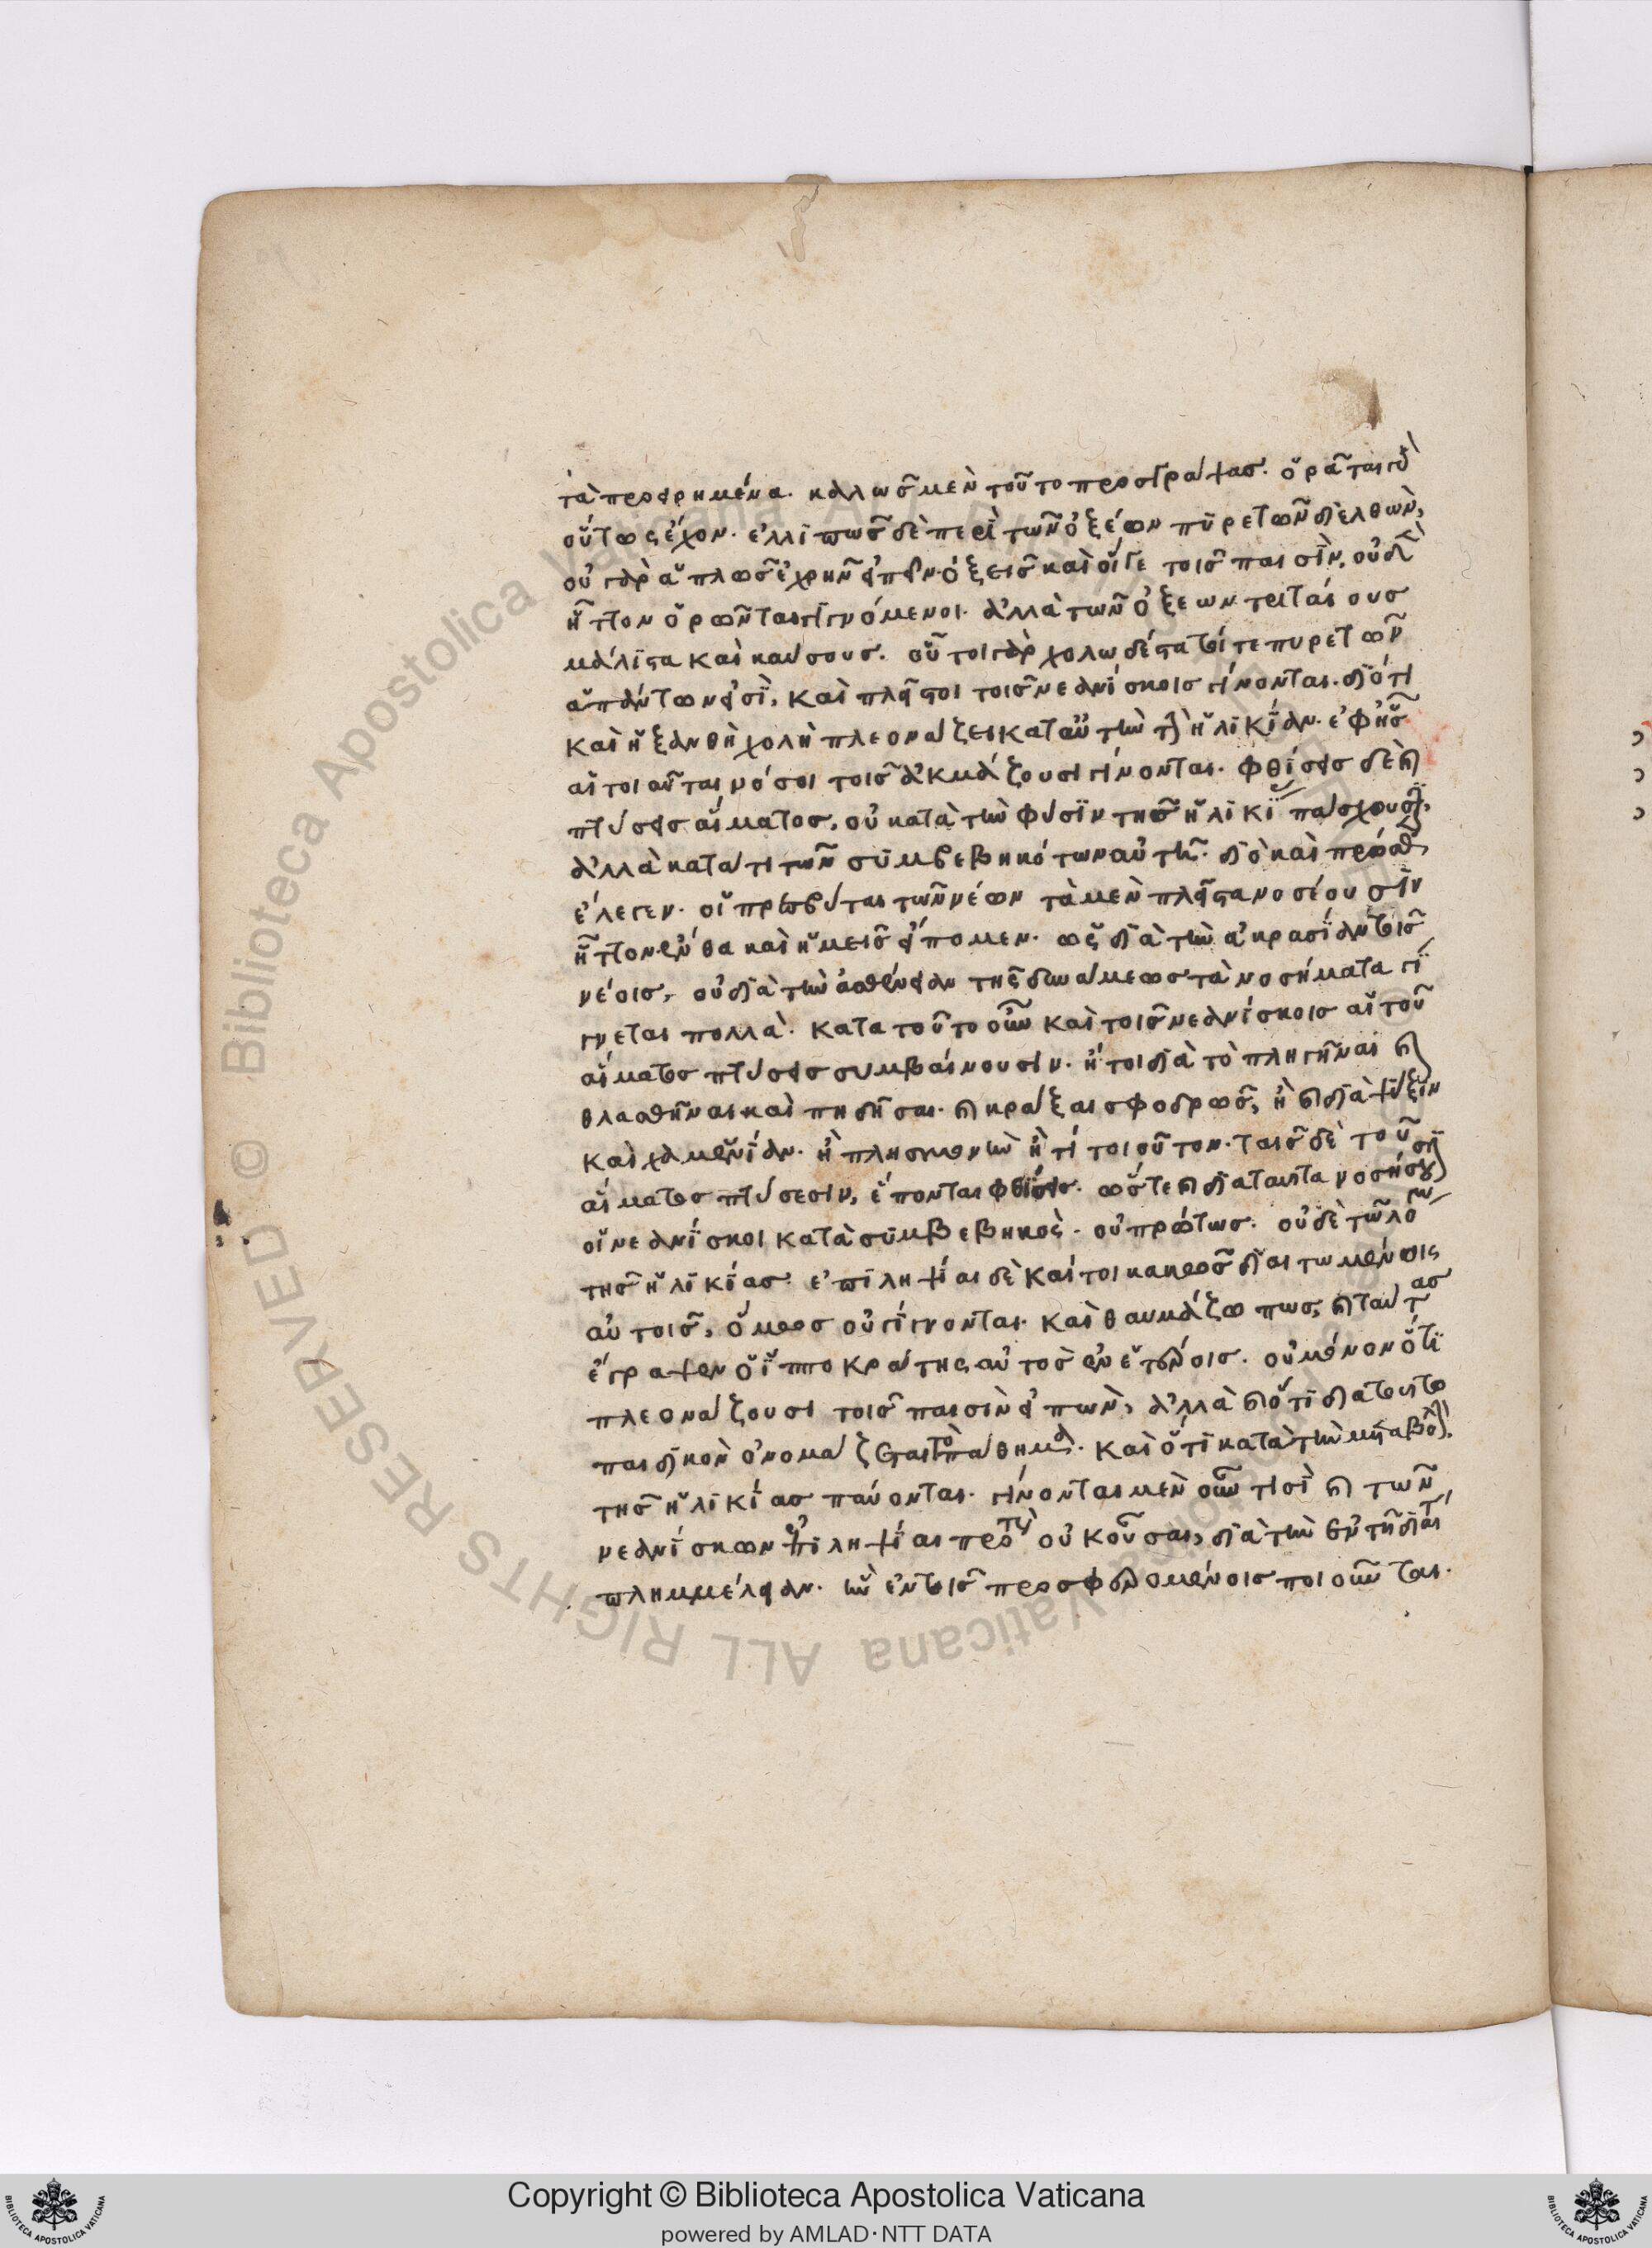 τὰ προειρημένα. καλῶς μὲν τοῦτο προσγράψας. ὁρᾶται γὰρ
οὕτως ἔχον. ἐλλιπῶς δὲ περὶ τῶν ὀξέων πυρετῶν διελθών,
οὐ γὰρ ἁπλῶς ἐχρῆν εἰπεῖν. ὀξεῖς καὶ οἵγε τοῖς παισίν, οὐδὲν
ἧττον ὁρῶνται γιγνόμενοι. ἀλλὰ τῶν ὀξέων τριταίους
μάλιστα καὶ καύσους. οὗτοι γὰρ χολωδέστατοί τε πυρετῶν
ἁπάντων εἰσί, καὶ πλεῖστοι τοῖς νεανίσκοις γίνονται. διότι
καὶ ἡ ξανθὴ χολὴ πλεονάζει κατ αὐτὴν τὴν ἡλικίαν. ἐφ ἧς
αἱ τοιαῦται νόσοι τοῖς ἀκμάζουσι γίνονται. φθίσεις δὲ καὶ
πτύσεις αἵματος, οὐ κατὰ τὴν φύσιν τῆς ἡλικί πάσχουσιν,
ἀλλὰ κατά τι τῶν συμβεβηκότων αὐτῇ. διὸ καὶ πρόσθεν
ἔλεγεν. οἱ πρεσβύται τῶν νέων τὰ μὲν πλεῖστα νοσέουσιν
ἧττον ἔνθα καὶ ἡμεῖς εἴπομεν. ὡς διὰ τὴν ἀκρασίαν τοῖς
νέοις, οὐ διὰ τὴν ἀσθένειαν τῆς δυνάμεως τὰ νοσήματα γί
γνεται πολλά. κατὰ τοῦτο οὖν καὶ τοῖς νεανίσκοις αἱ τοῦ
αἵματος πτύσεις συμβαίνουσιν. ἤτοι διὰ τὸ πληγῆναι καὶ
θλασθῆναι καὶ πηδῆσαι. καὶ κράξαι σφοδρῶς, ἢ καὶ διὰ ψύξιν
καὶ χαμευνίαν. ἢ πλησμονὴν ἤ τι τοιοῦτον. ταῖς δὲ τοῦ
αἵματος πτύσεσιν, ἕπονται φθίσεις. ὥστε καὶ διὰ ταύτα νοσήσουσιν
οἱ νεανίσκοι κατὰ συμβεβηκὸς. οὐ πρώτως. οὐδὲ τῶ λόγω
τῆς ἡλικίας. ἐπιληψίαι δὲ καίτοι κακῶς διαιτωμένοις
αὐτοῖς, ὅμως οὐ γίγνονται. καὶ θαυμάζω πως, καὶ ταύτας
ἔγραψεν ὁ ἱπποκράτης αὐτὸς ἐν ἑτέροις. οὐ μόνον ὅτι
πλεονάζουσι τοῖς παισὶν εἰπών, ἀλλὰ καὶ ὅτι διὰ τοῦτο
παιδικὸν ὀνομάζεται τὸ πάθημα. καὶ ὅτι κατὰ τὴν μεταβολὴν
τῆς ἡλικίας παύονται. γίνονται μὲν οὖν τισὶ καὶ τῶν
νεανίσκων ἐπιληψίαι πρότερον οὐκ οὖσαι, διὰ τὴν ἐν τῇ διαίτῃ
πλημμέλειαν. ἣν ἐν τοῖς προσφερομένοις ποιοῦνται.